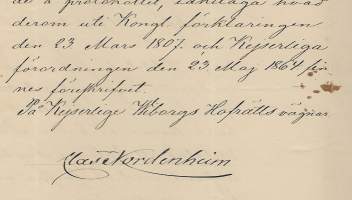 de å protokollet, iakttaga hvad
derom uti Kongl. förklaringen
den 23 Mars 1807 och Kejserliga
förordningen den 23 Maj 1864 fin
nes föreskrifvet.
På Kejserlige Wiborgs Hofrätts vägnar
Nordenheim